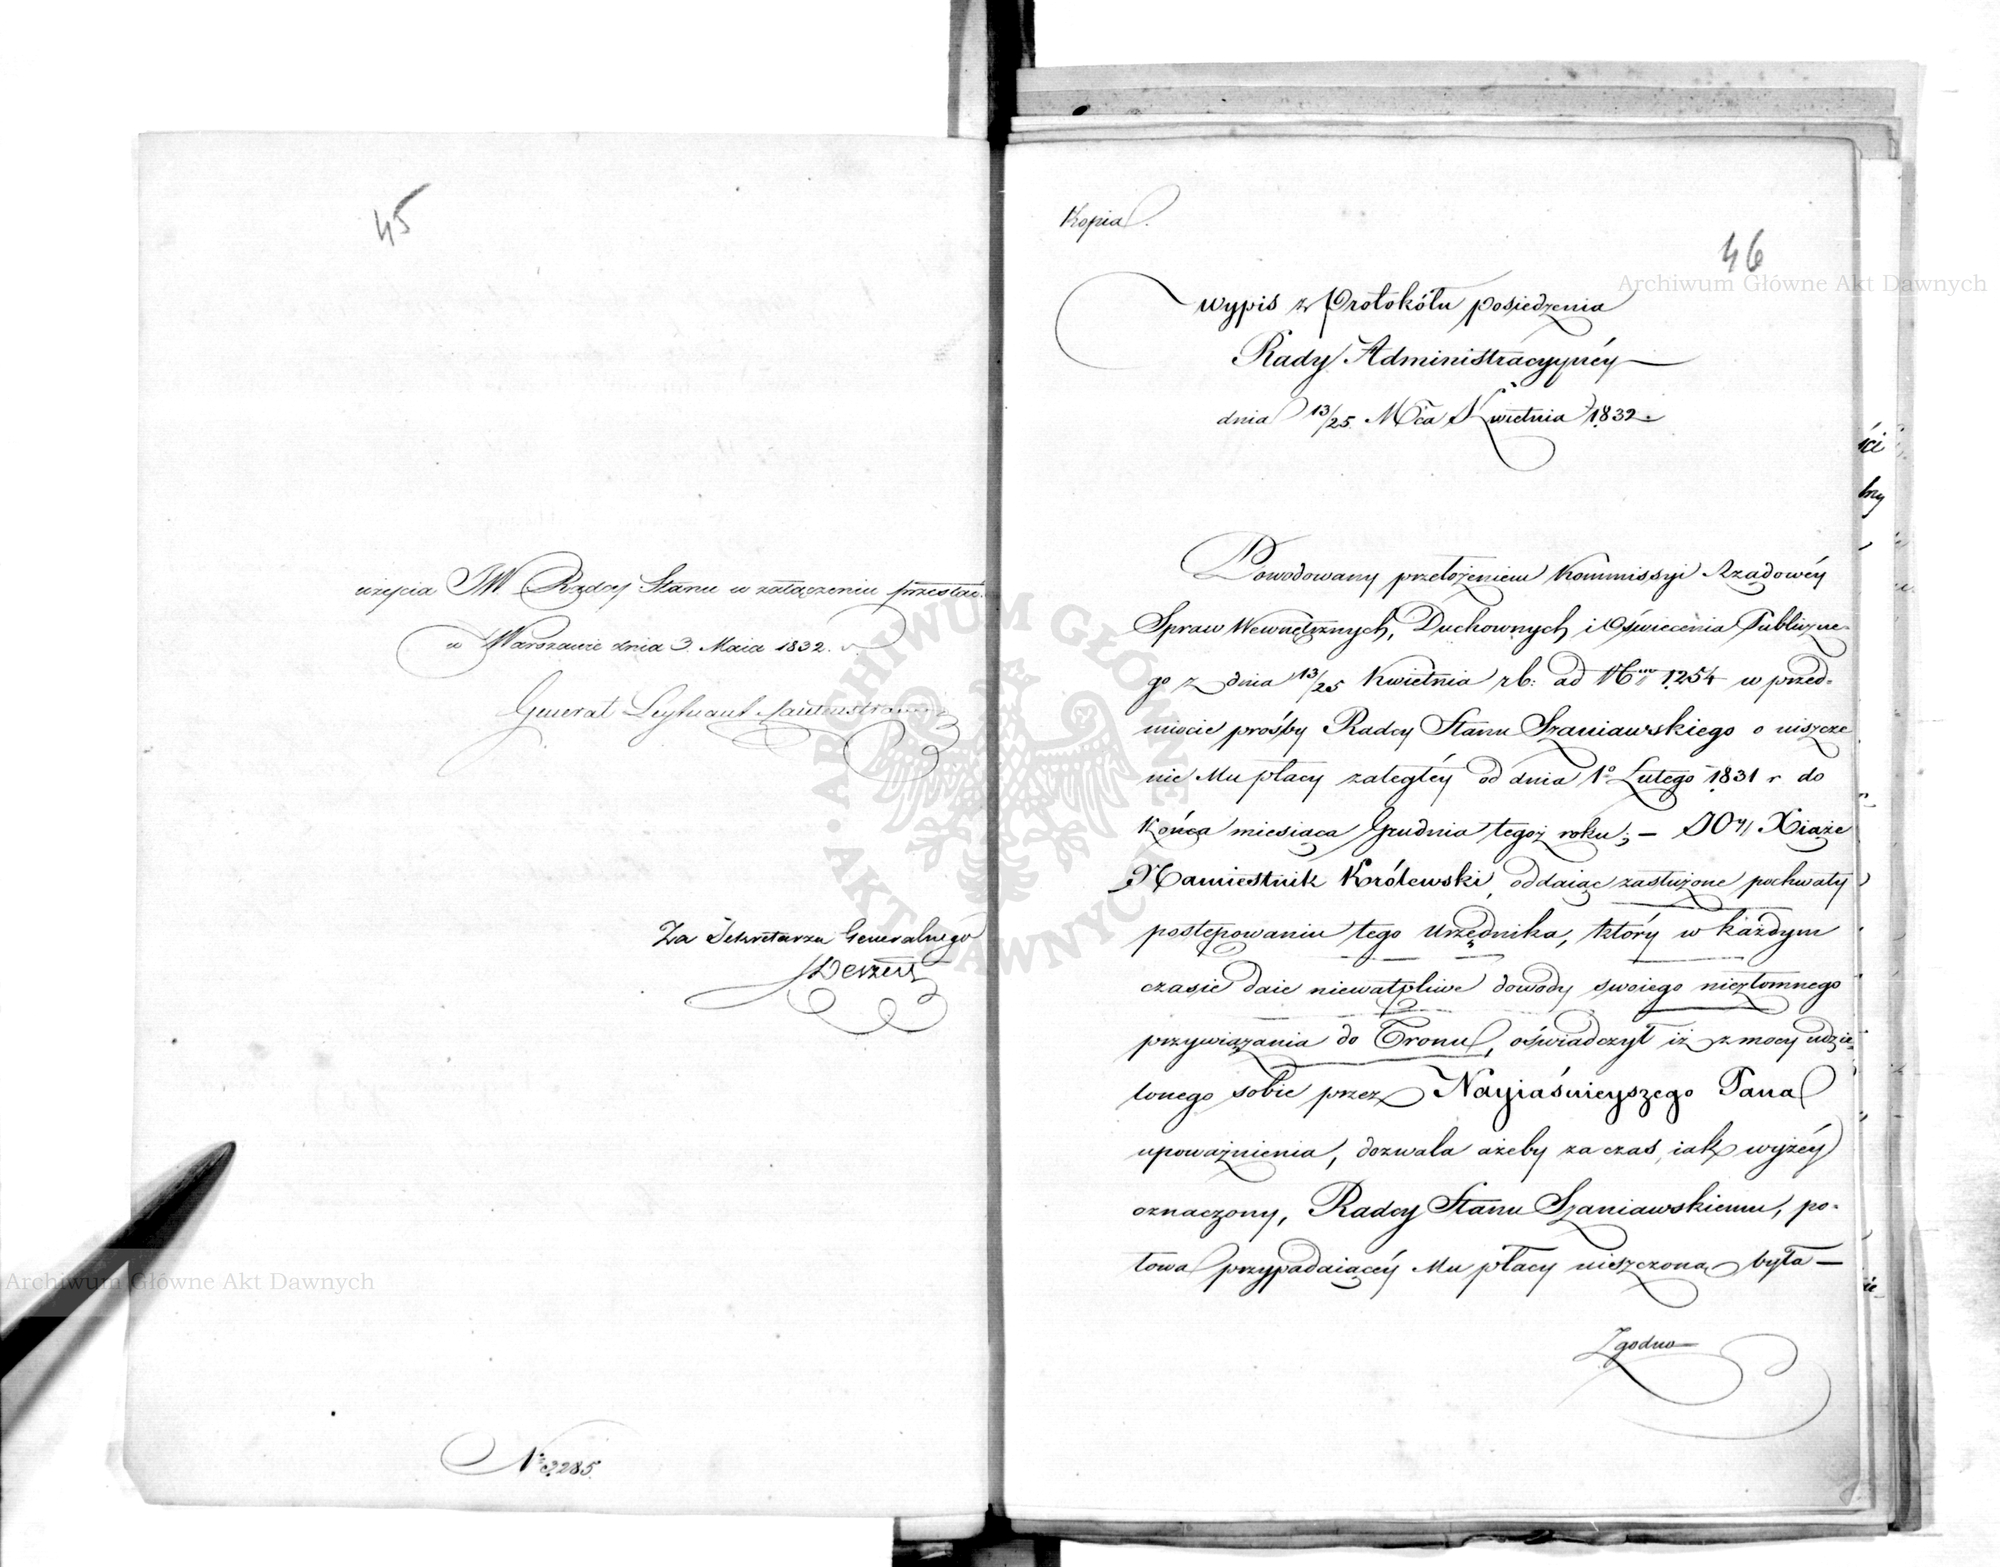 45
użycia JW. Radcy Stanu w załączeniu przesłać.
w Warszawie dnia 3. Maia 1832. r.
Generał Leytnant
Za Sekretarza Generalnego
N° 2285.
Kopia.
46
Archiwum Główne Akt Dawnych
Wypis z Protokółu posiedzenia
Rady Administracyynéy
dnia 13/25. Mca Kwietnia 1832.
Powodowany przełożeniem Kommissyi Rządowéy
Spraw Wewnętrznych, Duchownych i Oświecenia Publiczne-
go z dnia 13/25 Kwietnia rb: ad Nrum 1254 w przed-
miocie prośby Radcy Stanu Szaniawskiego o uiszcze
nie Mu płacy zaległéy od dnia 1° Lutego 1831 r do
końca miesiąca Grudnia tegoż roku; – JOy Xiąże
Namiestnik Królewski, oddaiąc zasłużone pochwały
postępowaniu tego Urzędnika, który w każdym
czasie daie niewątpliwe dowody swoiego niezłomnego
przywiązania do Tronu, oświadczył iż z mocy udzie-
lonego sobie przez Nayiaśnieyszego Pana
upoważnienia, dozwala ażeby za czas iak wyżéy
oznaczony, Radcy Stanu Szaniawskiemu, po-
łowa przypadaiącéy Mu płacy uiszczoną była —
Zgodno
Archiwum Główne Akt Dawnych
ARCHIWUM GŁÓWNE AKT DAWNYCH